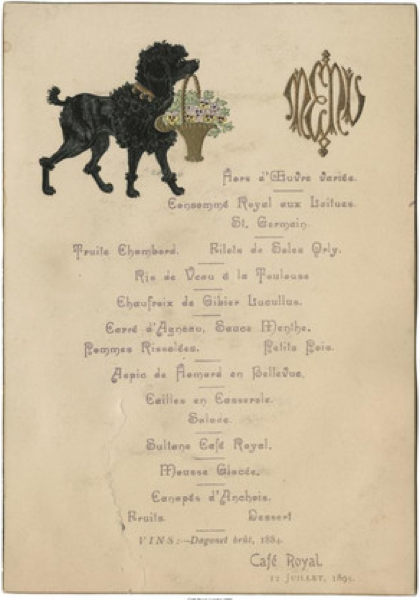 MENU
Hors d'Œuvre variés.
Consommé Royal aux Laitues.
St. Germain.
Truite Chambord. Filets de Soles Orly.
Ris de Veau à la Toulouse
Chaufroix de Gibier Lucullus.
Carré d'Agneau, Sauce Menthe.
Pommes Rissolées. Petits Pois.
Aspic de Homard en Bellevue.
Cailles en Casserole.
Salade.
Sultane Café Royal.
Mousse Glacée.
Canapés d'Anchois.
Fruits. Dessert
VINS:—Dagonet brût, 1884.
Café Royal
12 JUILLET, 1895.